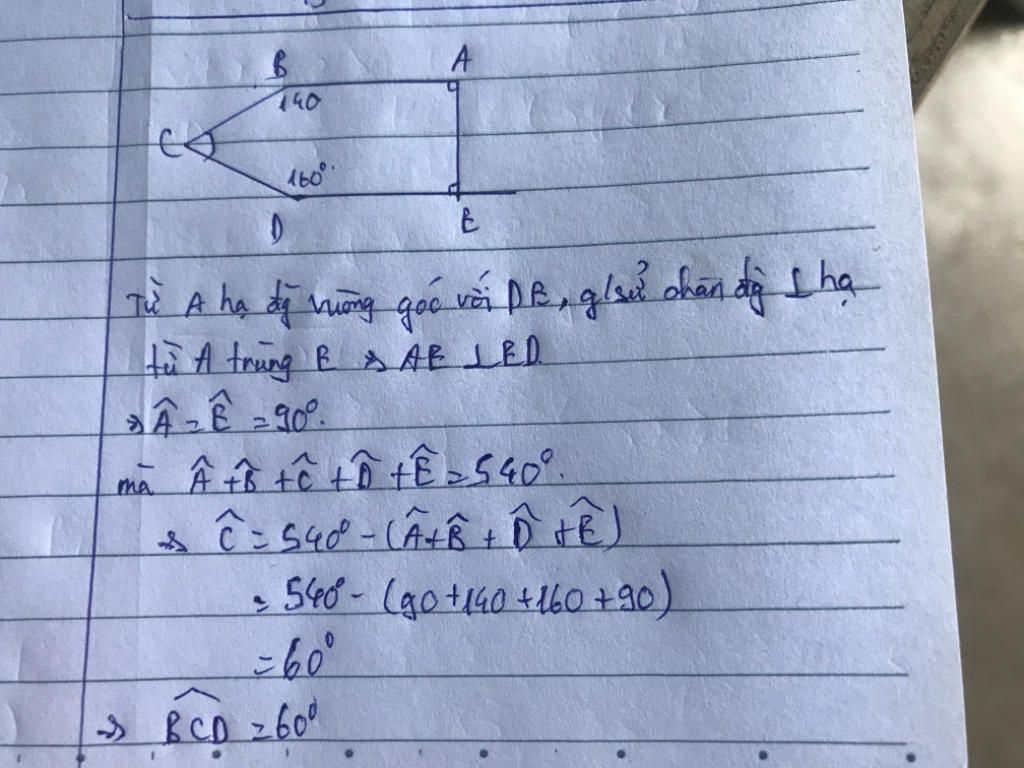 B
A
140
C
160°
D
E
Từ A hạ đg̀ vuông góc với DE, g/sử chân đg̀ ⊥ hạ
từ A trùng E => AE ⊥ ED
=> Â = Ê = 90°.
mà Â + B̂ + Ĉ + D̂ + Ê = 540°.
=> Ĉ = 540° - (Â + B̂ + D̂ + Ê)
= 540° - (90 + 140 + 160 + 90)
= 60°
=> B̂CD = 60°